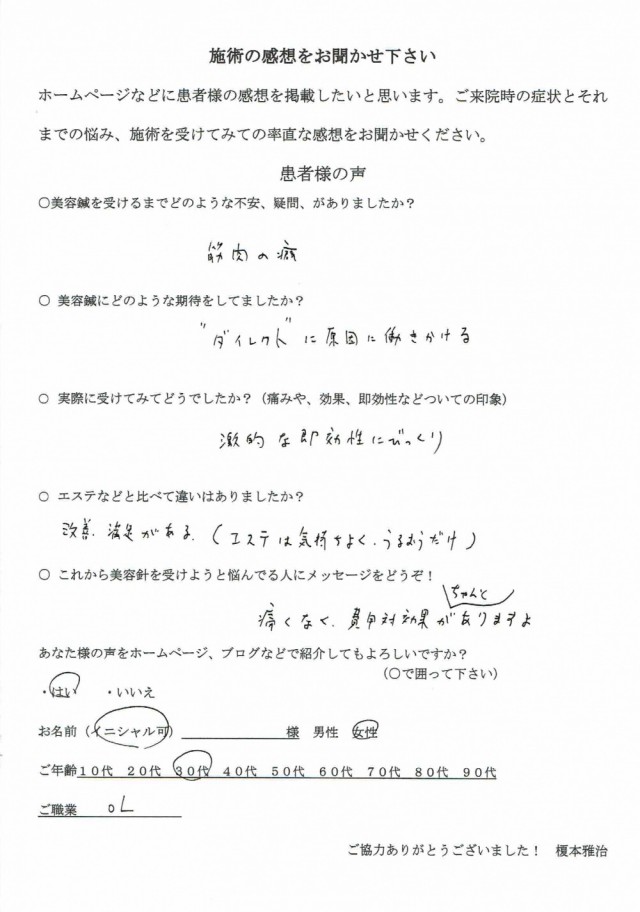 施術の感想をお聞かせ下さい
ホームページなどに患者様の感想を掲載したいと思います。ご来院時の症状とそれ
までの悩み、施術を受けてみての率直な感想をお聞かせください。
患者様の声
○美容鍼を受けるまでどのような不安、疑問、がありましたか？
筋肉の癖
○ 美容鍼にどのような期待をしてましたか？
"ダイレクト"に原因に働きかける
○ 実際に受けてみてどうでしたか？（痛みや、効果、即効性などついての印象）
激的な即効性にびっくり
○ エステなどと比べて違いはありましたか？
改善、満足がある。（エステは気持ちよく、うるおうだけ）
○ これから美容針を受けようと悩んでる人にメッセージをどうぞ！
ちゃんと
痛くなく、費用対効果がありますよ
あなた様の声をホームページ、ブログなどで紹介してもよろしいですか？
（○で囲って下さい）
・はい ・いいえ
お名前（イニシャル可） 様 男性 女性
ご年齢１０代 ２０代 ３０代 ４０代 ５０代 ６０代 ７０代 ８０代 ９０代
ご職業 OL
ご協力ありがとうございました！ 榎本雅治